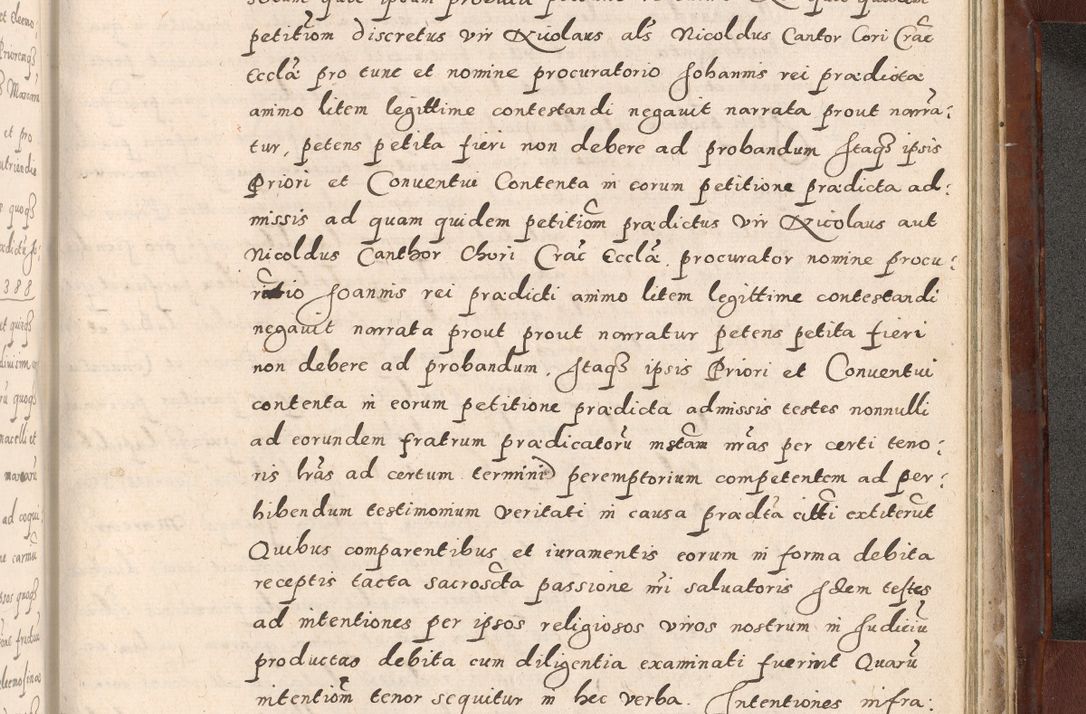 petitiõm discretus vir Nicolaus als Nicoldus Cantor Cori Crac̃
Ecclã pro tunc et nomine procuratorio Johannis rei prædictæ
animo litem legittime contestandi negavit narrata prout narrã:
tur, petens petita fieri non debere ad probandum Itaqꝫ ipsis
Priori et Conventui Contenta in eorum petitione prædicta ad:
missis ad quam quidem petitiõm prædictus vir Nicolaus aut
Nicoldus Canthor Chori Crac̃ Ecclã procurator nomine procu:
rio Joannis rei prædicti animo litem legittime contestandi
negavit narrata prout prout narratur petens petita fieri
non debere ad probandum, Itaqꝫ ipsis Priori et Conventui
contenta in eorum petitione prædicta admissis testes nonnulli
ad eorundem fratrum prædicatorũ instam nr̃as per certi teno:
ris lrãs ad certum termini peremptorium competentem ad per:
hibendum testimonium veritati in causa prædta citti extiterũt
Quibus comparentibus et iuramentis eorum in forma debita
receptis tacta sacroscta passione nr̃i salvatoris Idem testes
ad intentiones per ipsos religiosos viros nostrum in Judiciũ
productas debita cum diligentia examinati fuerint Quarũ
intentiõm tenor sequitur in hec verba. Intentiones infra:
et pro
quoqꝫ
388
ad coqui